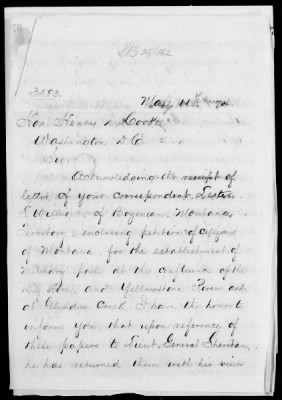 3583.
May 11th 74
Hon Henry D Cooke
Washington D.C.
Sir
Acknowledging the receipt of
letter of your correspondent, Lester
S Willson of Bozeman, Montana
Territory enclosing petition of citizens
of Montana, for the establishment of
Military post at the confluence of the
Big Horn, and Yellowstone Rivers and
at Glendive Creek, I have the honor to
inform you, that upon reference of
these papers to Lieut. General Sheridan,
he has returned them with his view